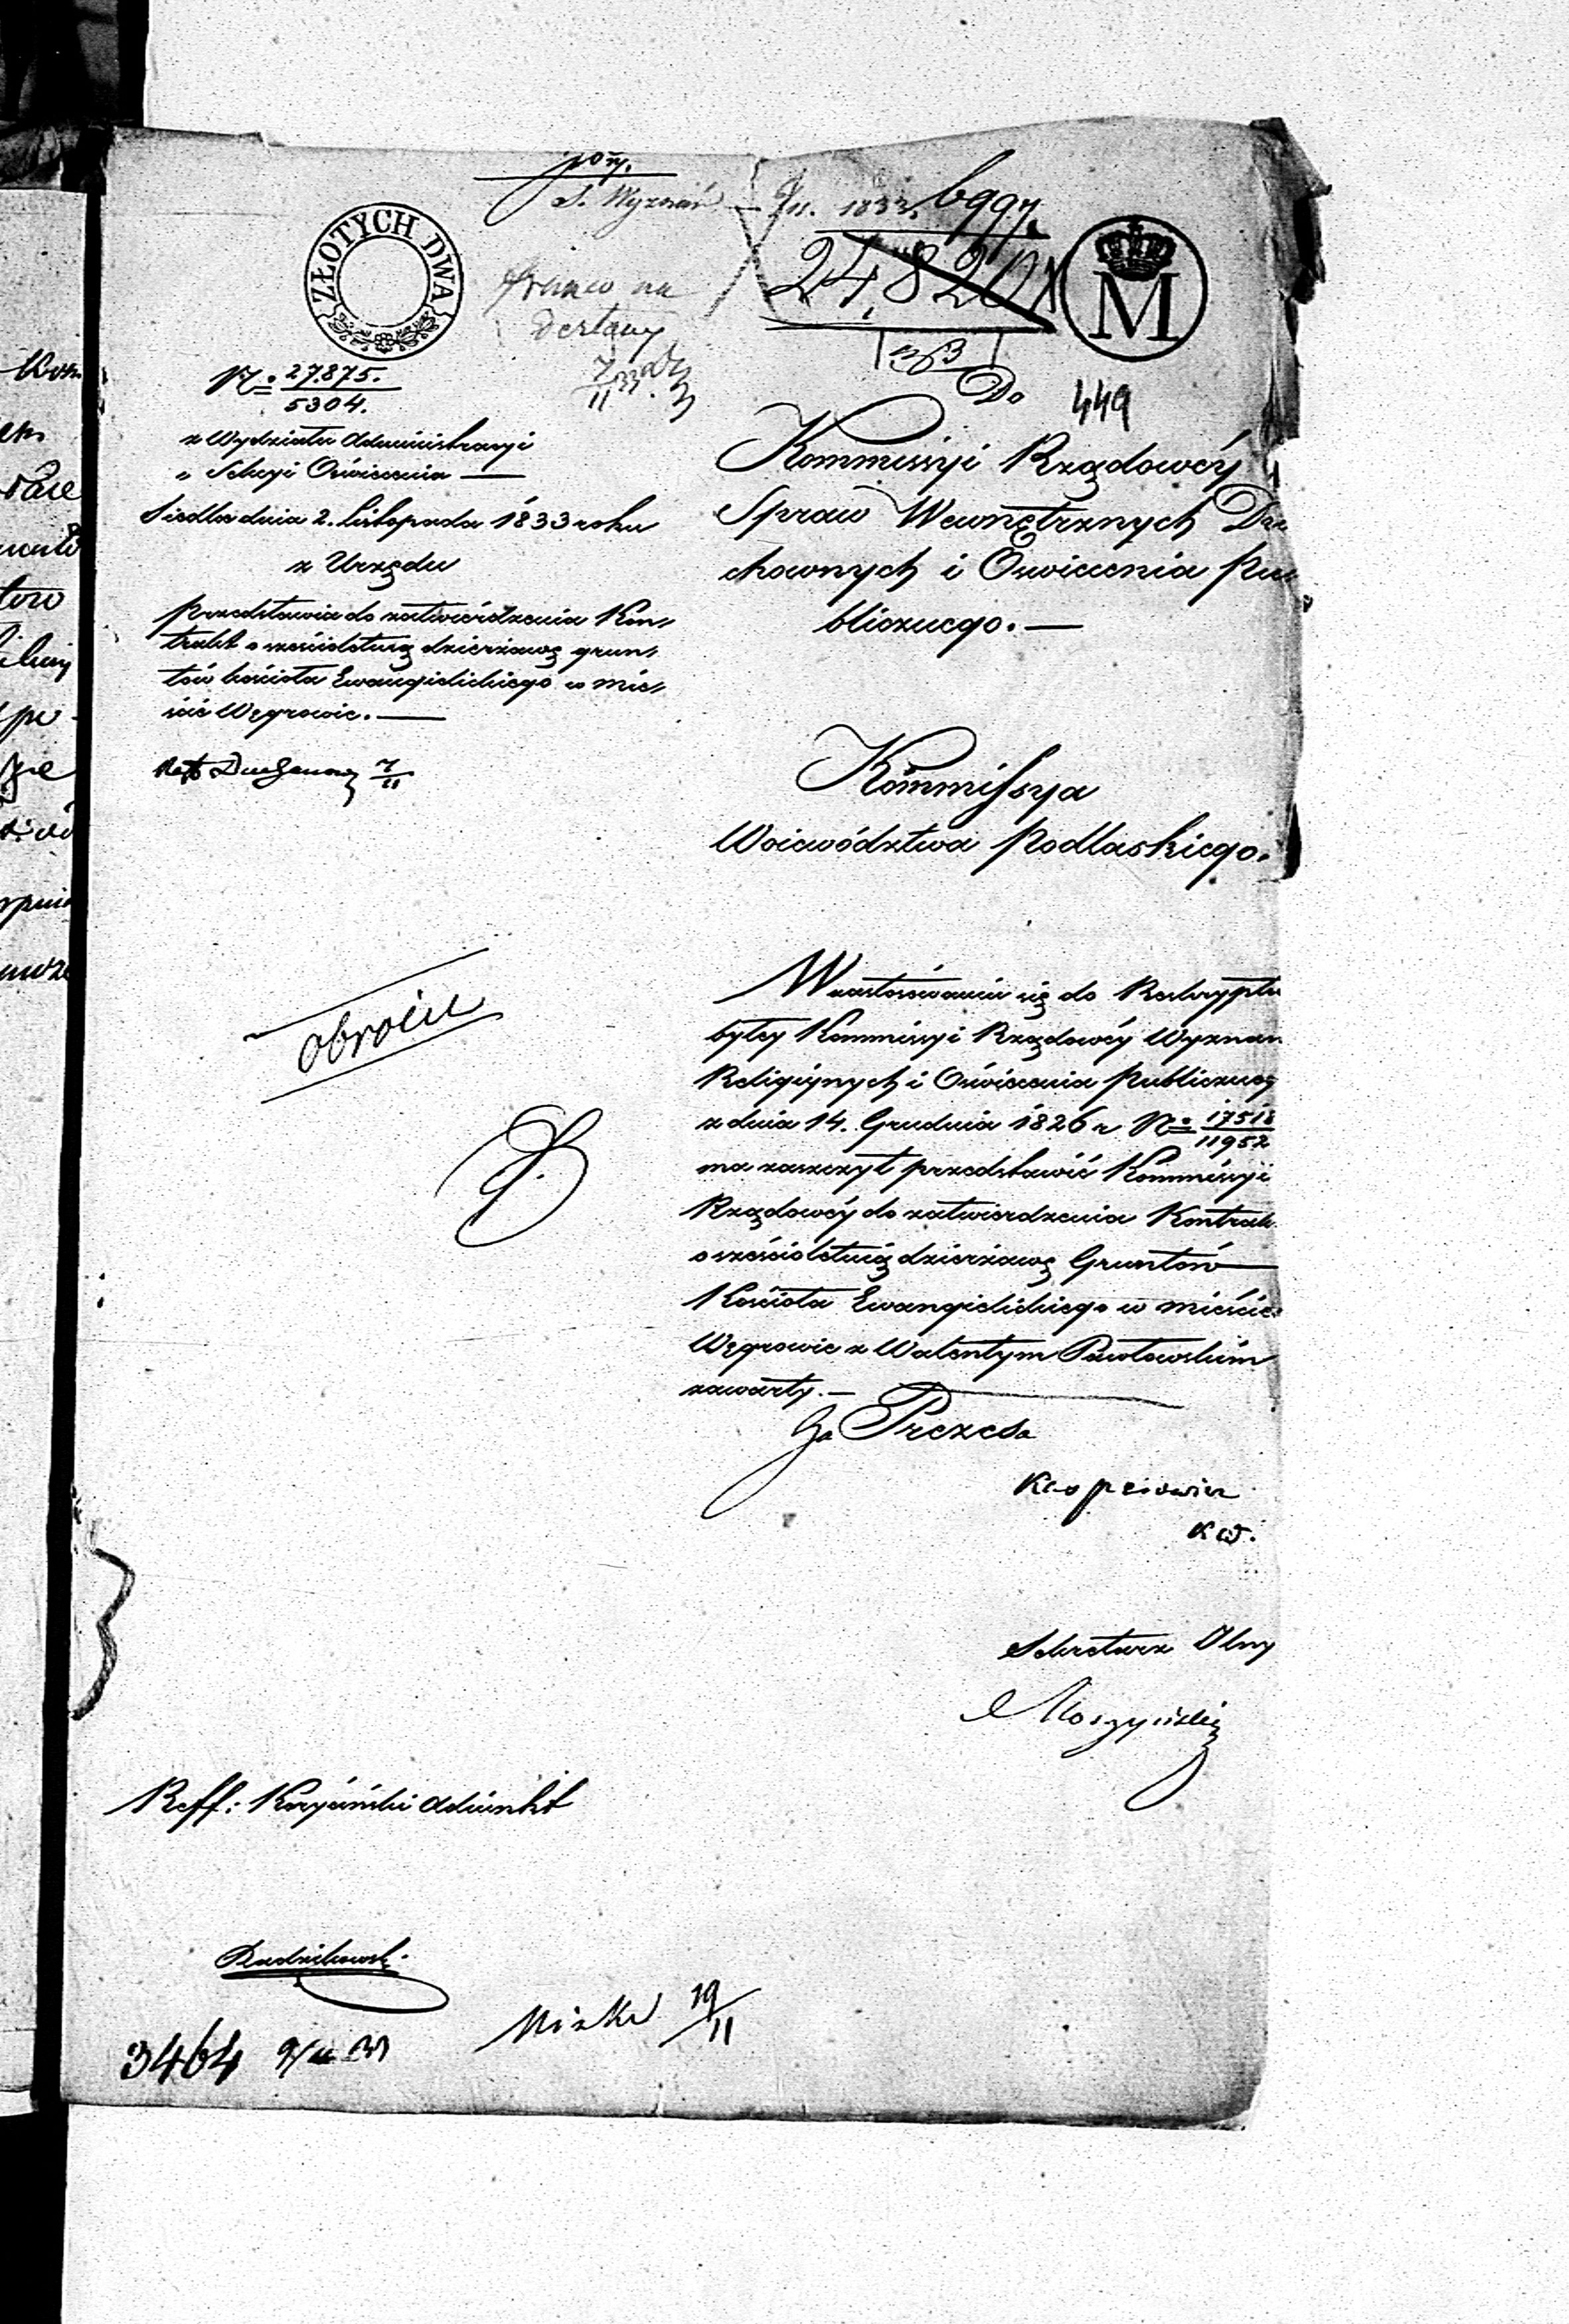 S. Wyznań
1833.
24,820
ZŁOTYCH DWA
M
franco na
No 27875.
5304.
Do
449
z Wydziału Administracyi
" Sekcyi Oświecenia —
Siedlce dnia 2. Listopada 1833 roku
z Urzędu
Przedstawia do zatwierdzenia Kon-
trakt o sześcioletnią dzierżawę grun-
tów kościoła Ewangielickiego w mie-
ście Węgrowie. —
7/11
Kommissyi Rządowéy
Spraw Wewnętrznych Du
chownych i Oswiecenia Pu
blicznego. —
Kommissya
Woiewództwa Podlaskiego.
W zastosowaniu się do Reskryptu
byłey Kommissyi Rządowéy Wyznań
Religiynych i Oświecenia Publiczneg
z dnia 14. Grudnia 1826 r No 17518
11952
ma zaszczyt przedstawić Kommissyi
Rządowéy do zatwierdzenia Kontrak
o sześcioletnią dzierżawę Gruntów —
Kościoła Ewangielickiego w mieście
Węgrowie z Walentym Pawłowskim
zawarty. —
obrócić
Za Prezesa
K W.
Sekretarz Jlny
Moszyński
Reff: Korycińśki Adiunkt
Radzikowski
3464
19/11